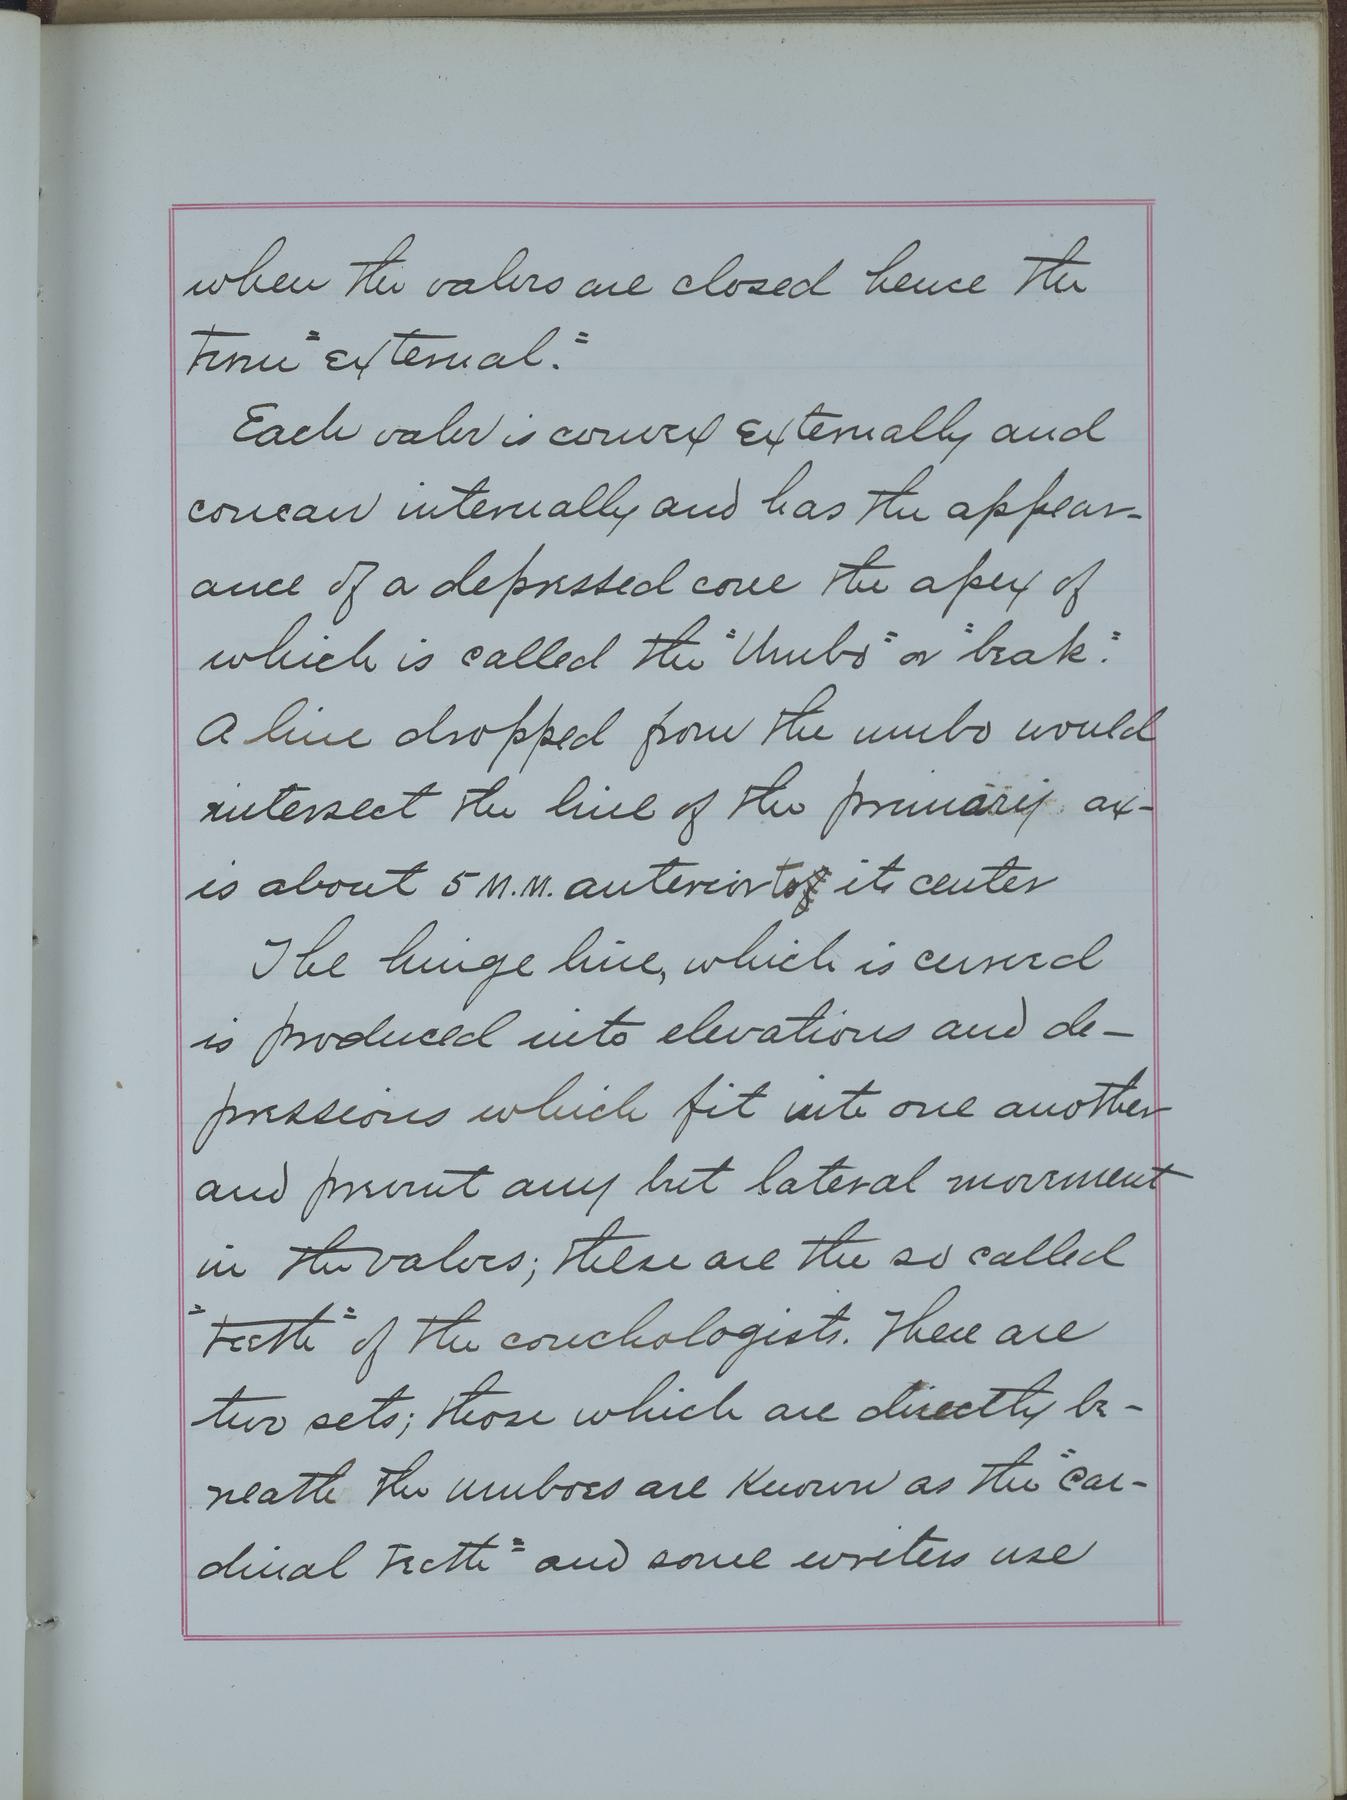 when the valves are closed hence the
term "external."
Each valve is convex externally and
concave internally and has the appear-
ance of a depressed cone the apex of
which is called the "Umbo" or "beak".
A line dropped from the umbo would
intersect the line of the primary ax-
is about 5 M.M. anterior to its center
The hinge line, which is curved
is produced into elevations and de-
pressions which fit into one another
and prevent any but lateral movement
in the valves; these are the so called
"teeth" of the conchologists. There are
two sets; those which are directly be-
neath the umboes are known as the "car-
dinal teeth" and some writers use